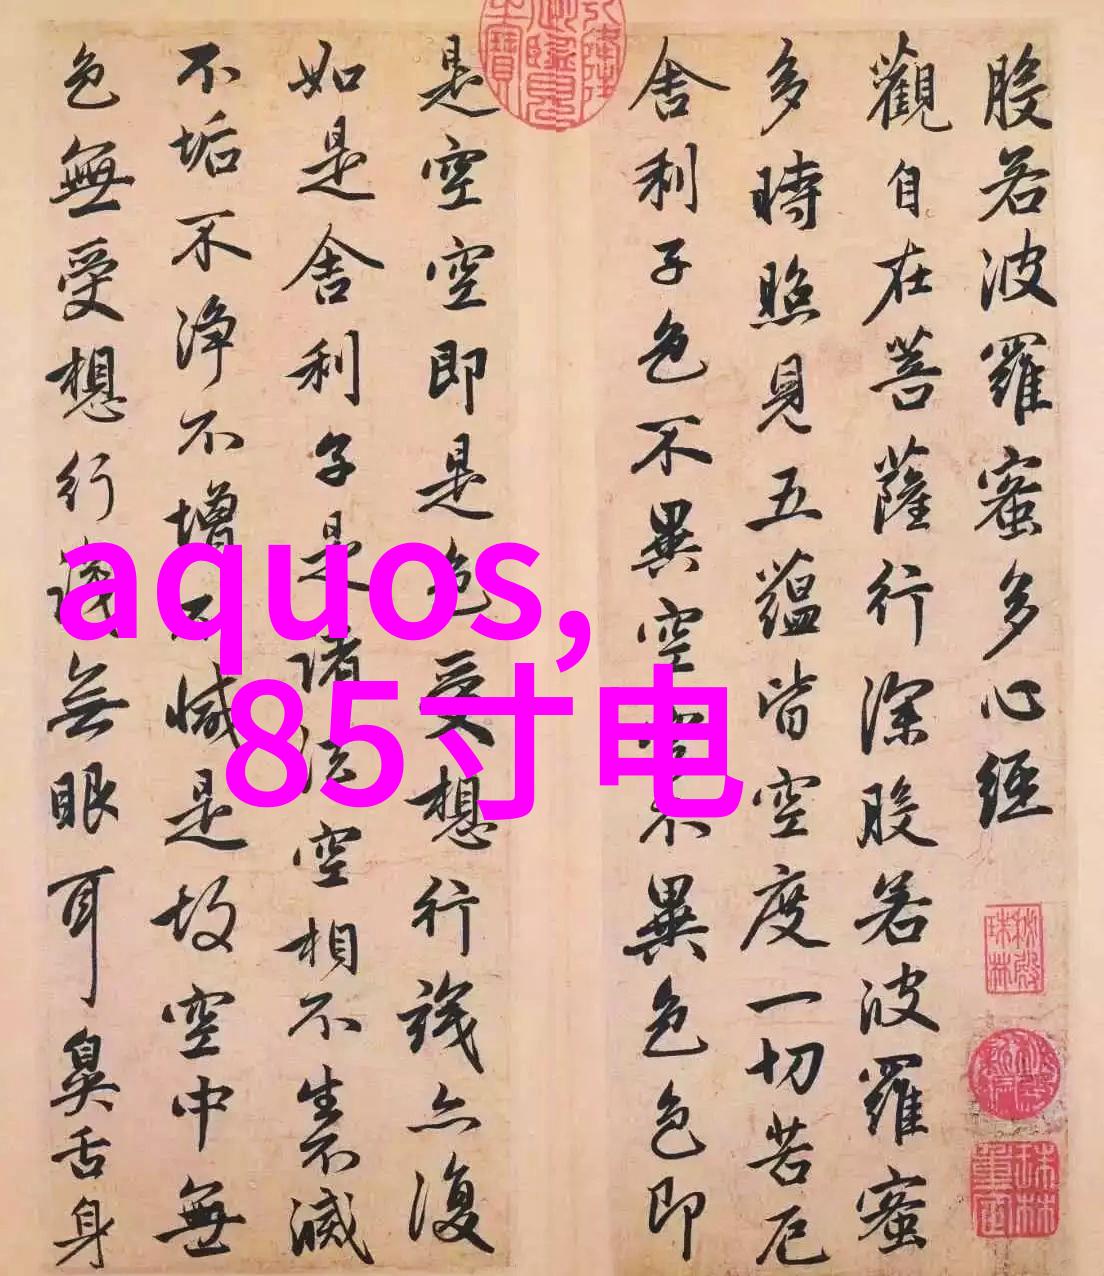 般若波羅蜜多心經
觀自在菩薩行深般若波羅蜜
多時照見五蘊皆空度一切苦厄
舍利子色不異空空不異色色即
是空空即是色受想行識亦復
如是舍利子是諸法空相不生不滅
不垢不净不增不減是故空中無
色無受想行識無眼耳鼻舌身
aquos,
85寸电